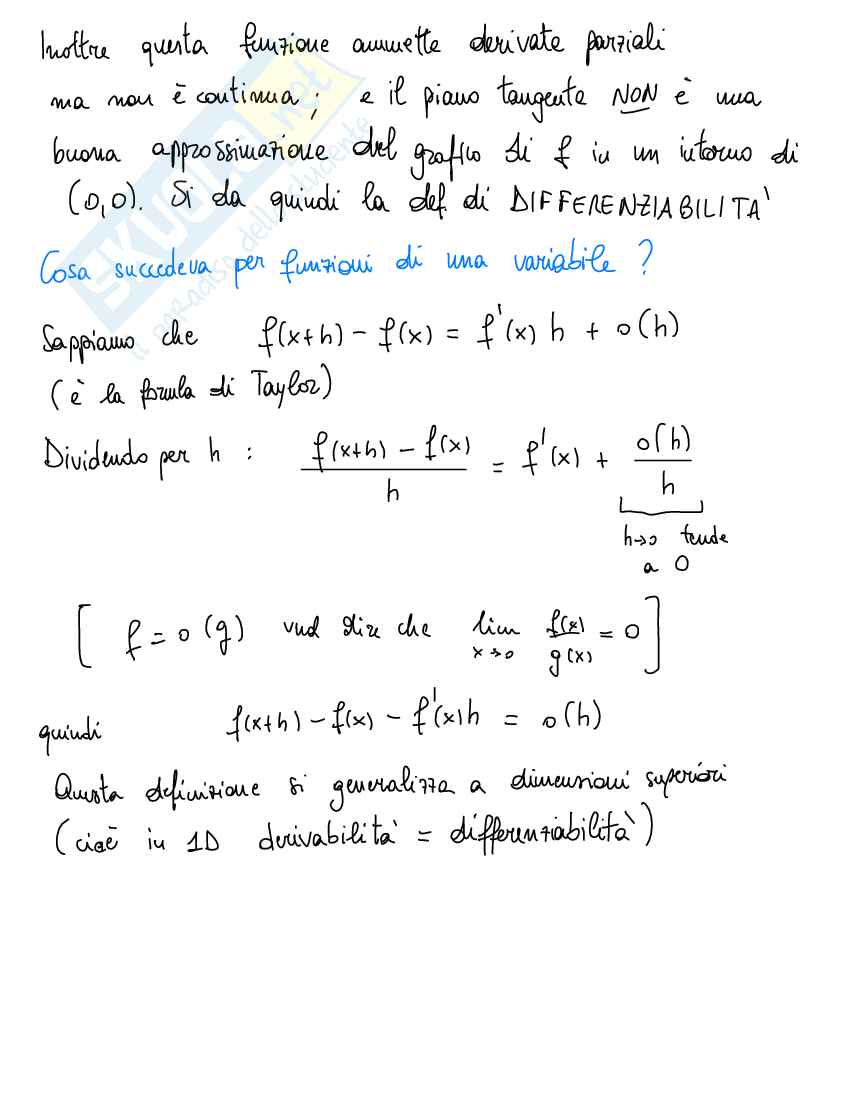 Inoltre questa funzione ammette derivate parziali
ma non è continua; e il piano tangente NON è una
buona approssimazione del grafico di f in un intorno di
(0,0). Si da quindi la def di DIFFERENZIABILITA'
Cosa succedeva per funzioni di una variabile ?
Sappiamo che f(x+h) - f(x) = f'(x) h + o(h)
(è la formula di Taylor)
Dividendo per h : (f(x+h) - f(x))/h = f'(x) + o(h)/h
h→0 tende
a 0
[ f = o(g) vuol dire che lim x→0 f(x)/g(x) = 0 ]
quindi f(x+h) - f(x) - f'(x)h = o(h)
Questa definizione si generalizza a dimensioni superiori
(cioè in 1D derivabilità = differenziabilità)
SKUOLA.net
il paradiso dello studente